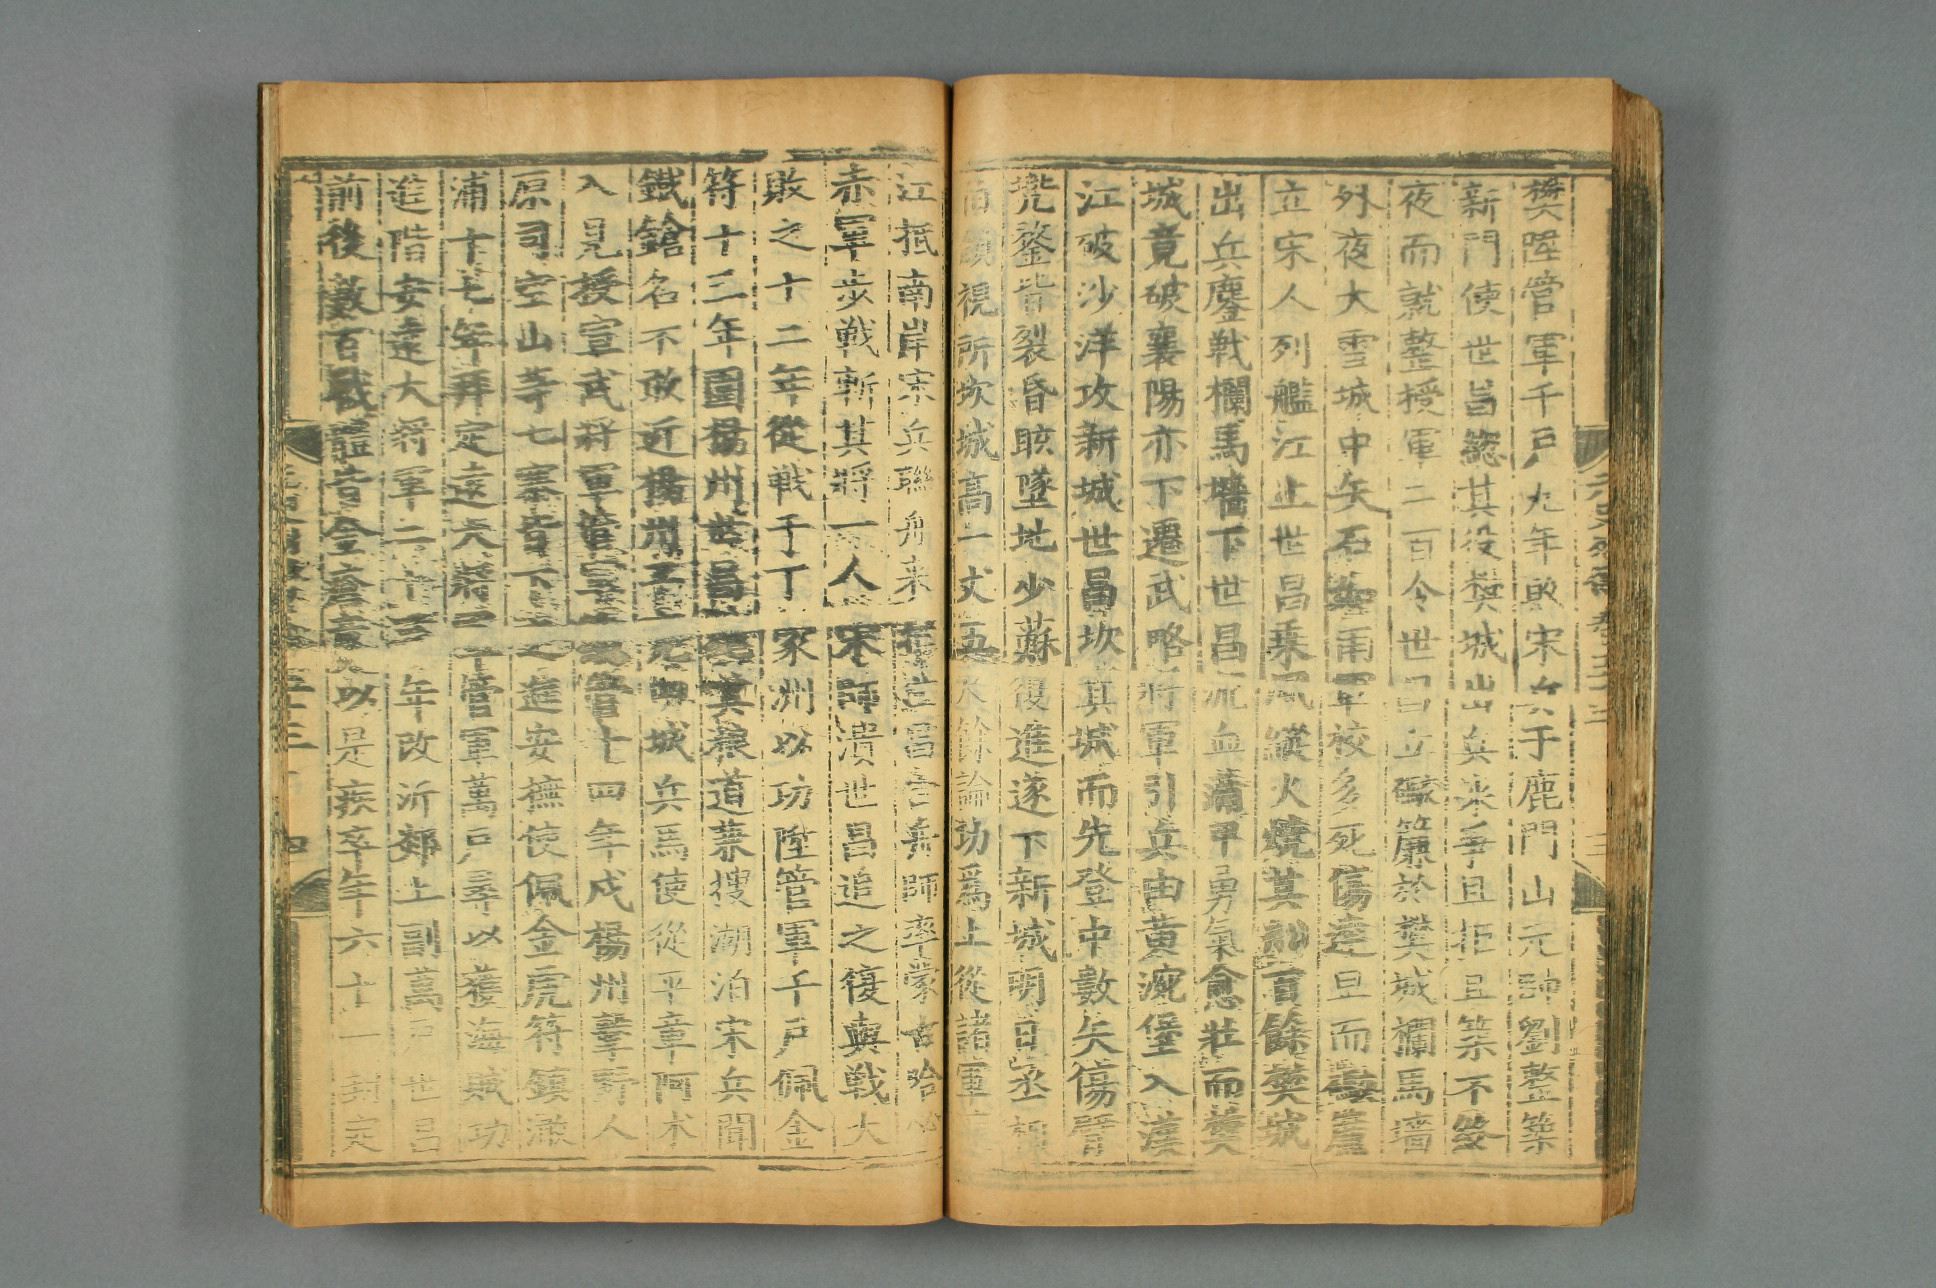 樊陞管軍千戶九年敗宋兵于鹿門山元帥劉整築
新門使世昌總其役樊城出兵來爭且拒且築不終
夜而就整授軍二百令世昌立礮簾於樊城欄馬墻
外夜大雪城中矢石如雨軍校多死傷達旦而礮簾
立宋人列艦江上世昌乘風縱火燒其船百餘樊城
出兵鏖戰欄馬墻下世昌流血滿甲勇氣愈壯而樊
城竟破襄陽亦下遷武略將軍引兵由黃涴堡入漢
江破沙洋攻新城世昌坎其城而先登中數矢傷臂
兠鍪皆裂昏眩墜地少蘇復進遂下新城明日丞相
伯顏視所坎城高一丈五尺餘論功爲上從諸軍
江抵南岸宋兵聯舟來 世昌 師率蒙古哈必
赤軍步戰斬其將一人宋師潰世昌追之復與戰大
敗之十二年從戰于丁家洲以功陞管軍千戶佩金
符十三年圍揚州世昌 其糧道蒙搜湖泊宋兵聞
鐵鎗名不敢近揚州 城兵馬使從平章阿术
入見授宣武將軍管軍 管十四年戍揚州羣 人
原司空山等七寨皆下之進安撫使佩金虎符鎮漵
浦十七年拜定遠大將軍管軍萬戶 年以獲海賊功
進階安遠大將軍二十三年改沂郯上副萬戶世昌
前後數百戰體皆金瘡竟以是疾卒年六十一封定